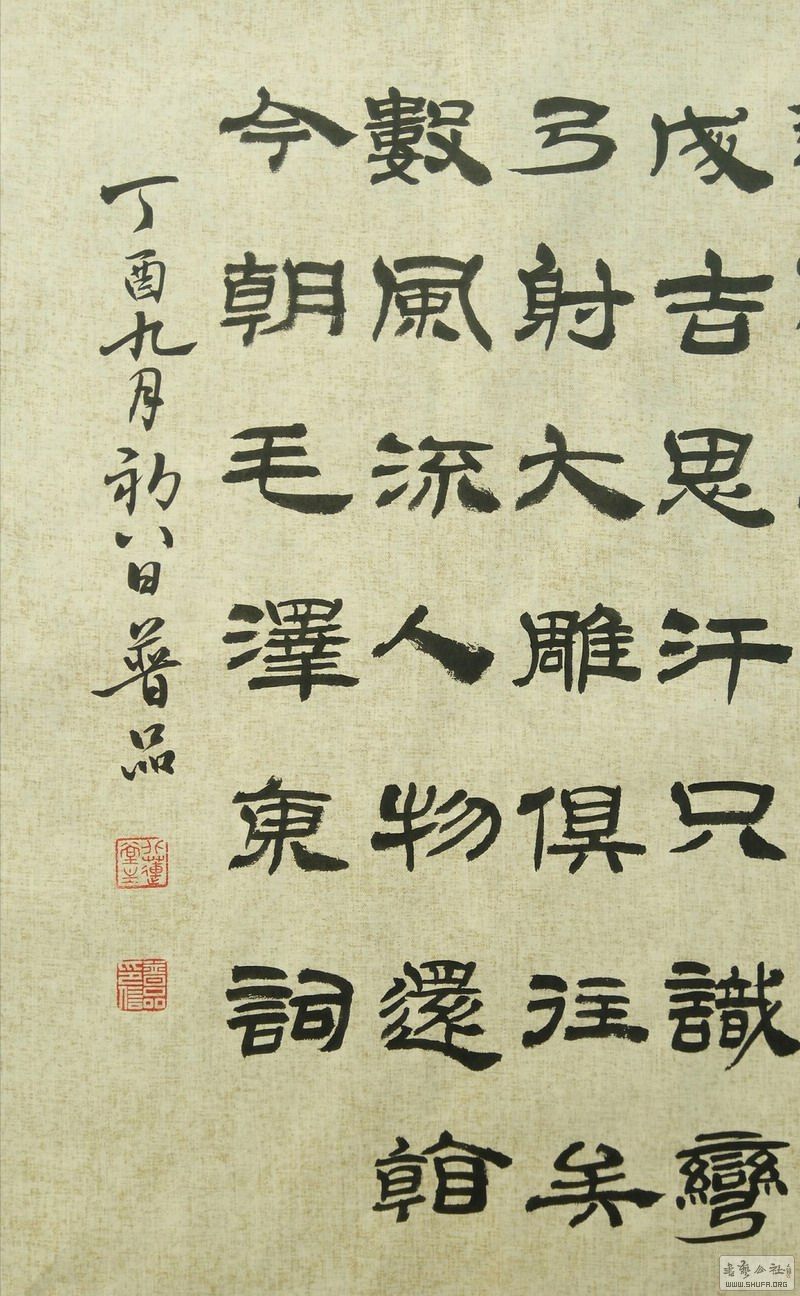 成吉思汗只識彎
弓射大雕俱往矣
數風流人物還看
今朝毛澤東詞
丁酉九月初八日普品
普品印信
書藝公社
WWW.SHUFA.ORG